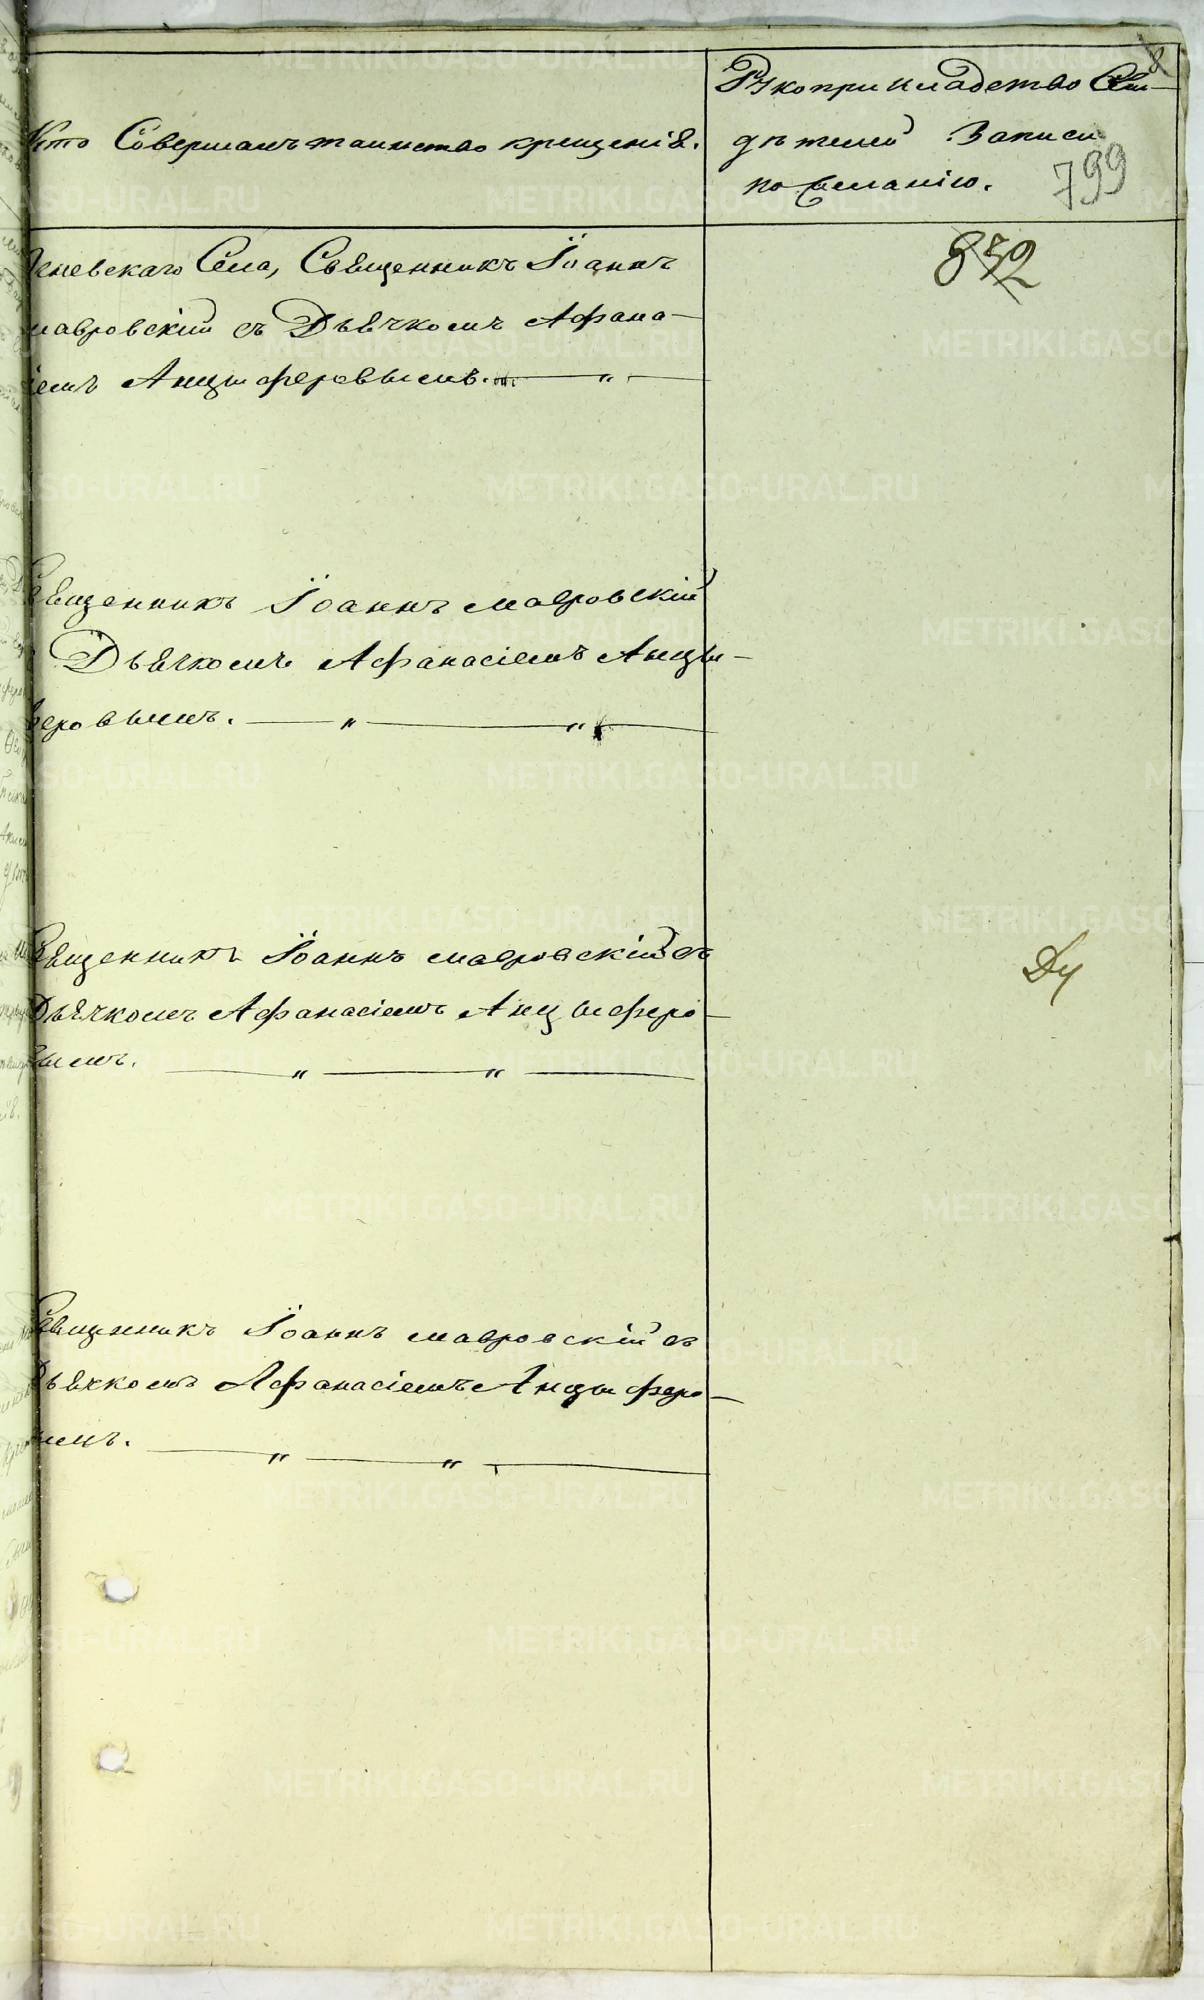 Кто Совершалъ таинство крещенія.
Рукоприкладство Сви-
дѣтелей Записи
по желанію.
8
799
832
Села, Священникъ Іоаннъ
мавровскій съ Дьячкомъ Афана-
сіемъ Анцыферовымъ. — " —
Священникъ Іоаннъ мавровскій
Дьячкомъ Афанасіемъ Анцы-
феровымъ. — " — " —
Священникъ Іоаннъ мавровскій съ
Дьячкомъ Афанасіемъ Анцыферо-
вымъ. — " — " —
Ду
Священникъ Іоаннъ мавровскій съ
Дьячкомъ Афанасіемъ Анцыферо-
вымъ. — " — " —
METRIKI.GASO-URAL.RU